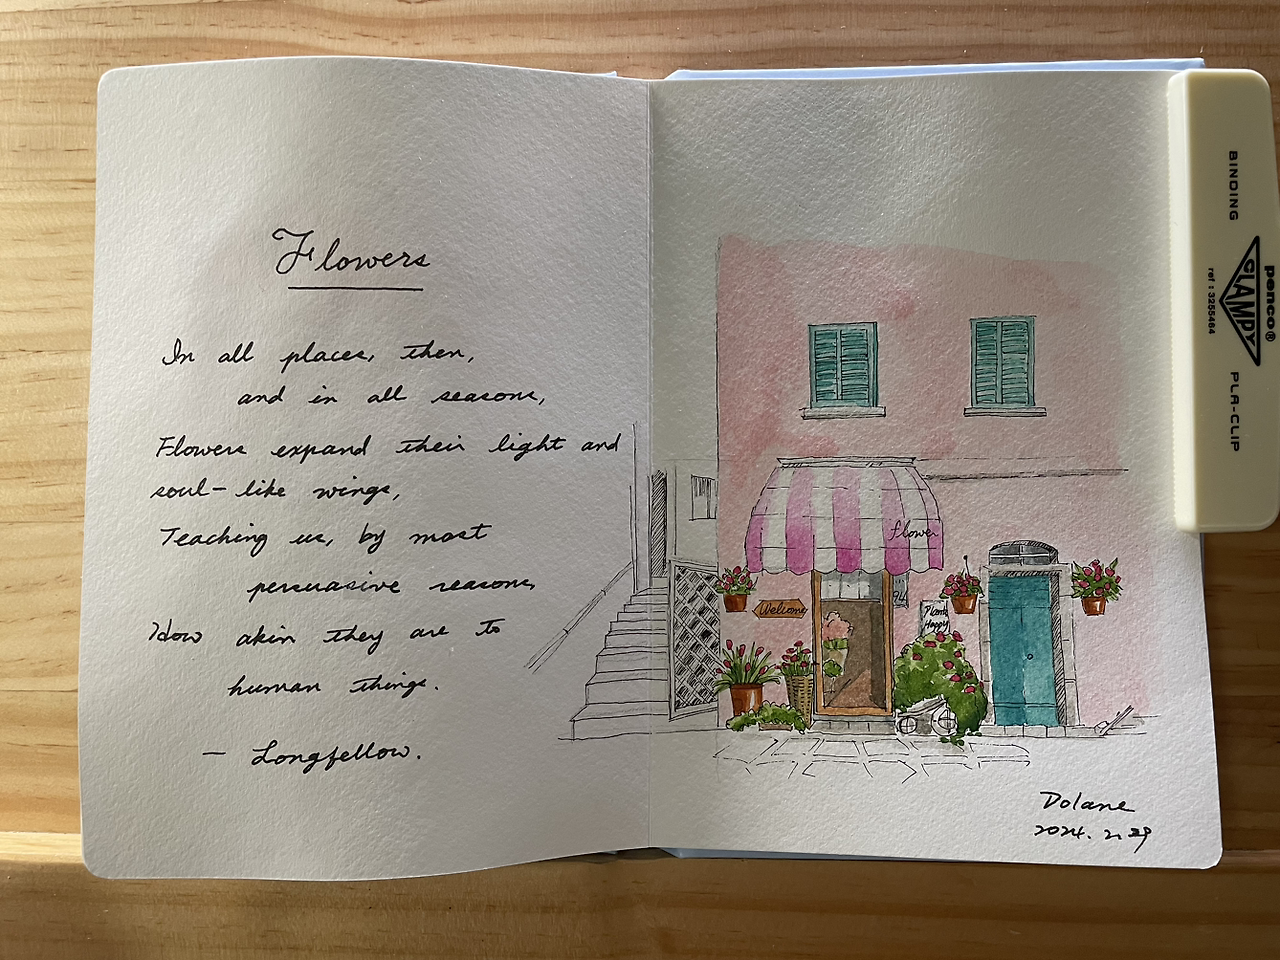 Flowers
In all places, then,
and in all seasons,
Flowers expand their light and
soul-like wings,
Teaching us, by most
persuasive reasons,
How akin they are to
human things.
— Longfellow.
flower
Welcome
94
Plants
Happy
Dolane
2024. 2. 29
BINDING
penco®
CLAMPY
ref : 3255464
PLA-CLIP